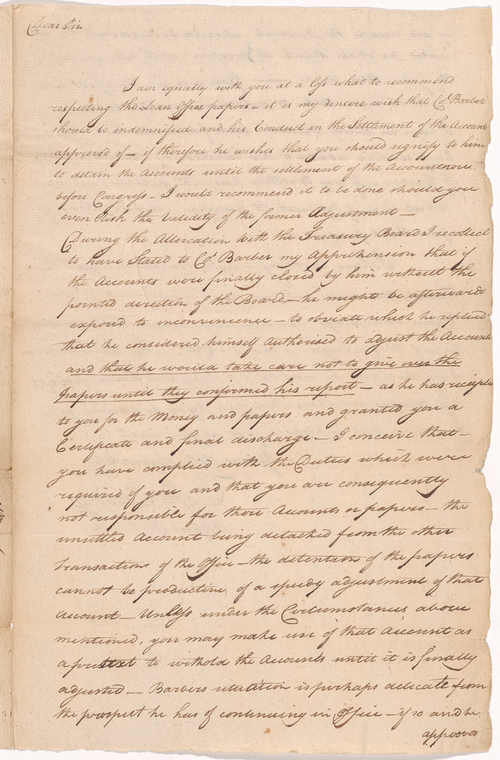 Dear Sir
I am equally with you at a loss what to recommend
respecting the Loan Office papers – it is my sincere wish that Col. Barber
should be indemnified and his Conduct in the Settlement of the Account
approved of – if therefore he wishes that you should signify to him
to detain the Accounts until the settlement of the Account now
before Congress – I would recommend it to be done should you
even Risk the Validity of the former Adjustment –
During the Altercation with the Treasury Board I recollect
to have Stated to Col. Barber my Apprehension that if
the Accounts were finally closed by him without the
pointed direction of the Board – he might be afterwards
exposed to inconvenience – to obviate which he replied
that he considered himself Authorised to adjust the Accounts
and that he would take care not to give over the
papers until they confirmed his report – as he has receipted
to you for the Money and papers and granted you a
Certificate and final discharge – I conceive that –
you have complied with the Duties which were
required of you and that you are consequently
not responsible for those Accounts or papers – the
unsettled Account being detached from the other
transactions of the Office – the detention of the papers
cannot be productive of a speedy adjustment of that
Account – Unless under the Circumstances above
mentioned, you may make use of that Account as
a pretext to withold the Accounts until it is finally
adjusted – Barbers situation is perhaps delicate from
the prospect he has of continuing in Office – if so and he
approves